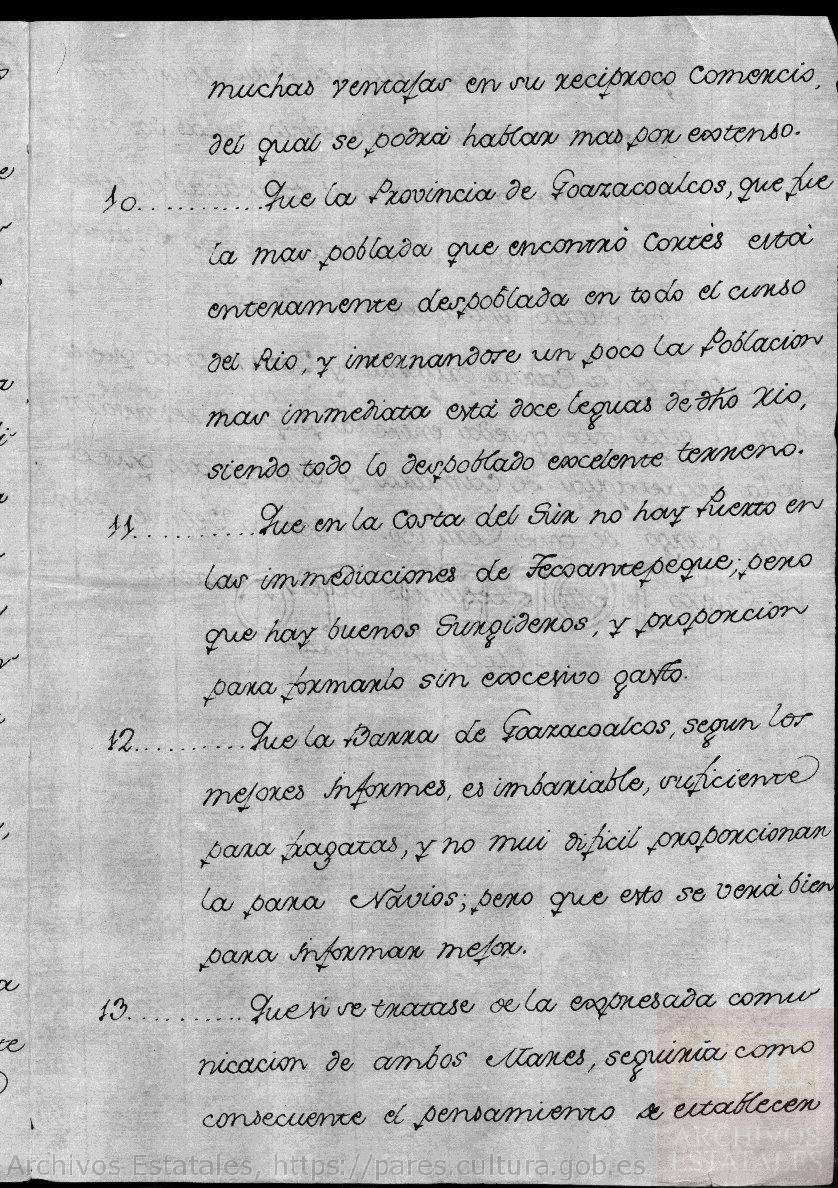 muchas ventajas en su reciproco Comercio,
del qual se podrá hablar mas por extenso.
10............Que la Provincia de Goazacoalcos, que fue
la mas poblada que encontró Cortés está
enteramente despoblada en todo el curso
del Rio, y internandose un poco la Poblacion
mas immediata está doce leguas de dho Rio,
siendo todo lo despoblado excelente terreno.
11............Que en la Costa del Sùr no hay Puerto en
las immediaciones de Tecoantepeque; pero
que hay buenos Surgideros, y proporcion
para formarlo sin excesivo gasto.
12............Que la Barra de Goazacoalcos, segun los
mejores Informes, es imbariable, suficiente
para fragatas, y no mui dificil proporcionar
la para Návios; pero que esto se verá bien
para Informar mejor.
13............Que si se tratase de la expresada comu
nicacion de ambos Mares, seguiría como
consecuente el pensamiento de establecer
Archivos Estatales, https://pares.cultura.gob.es